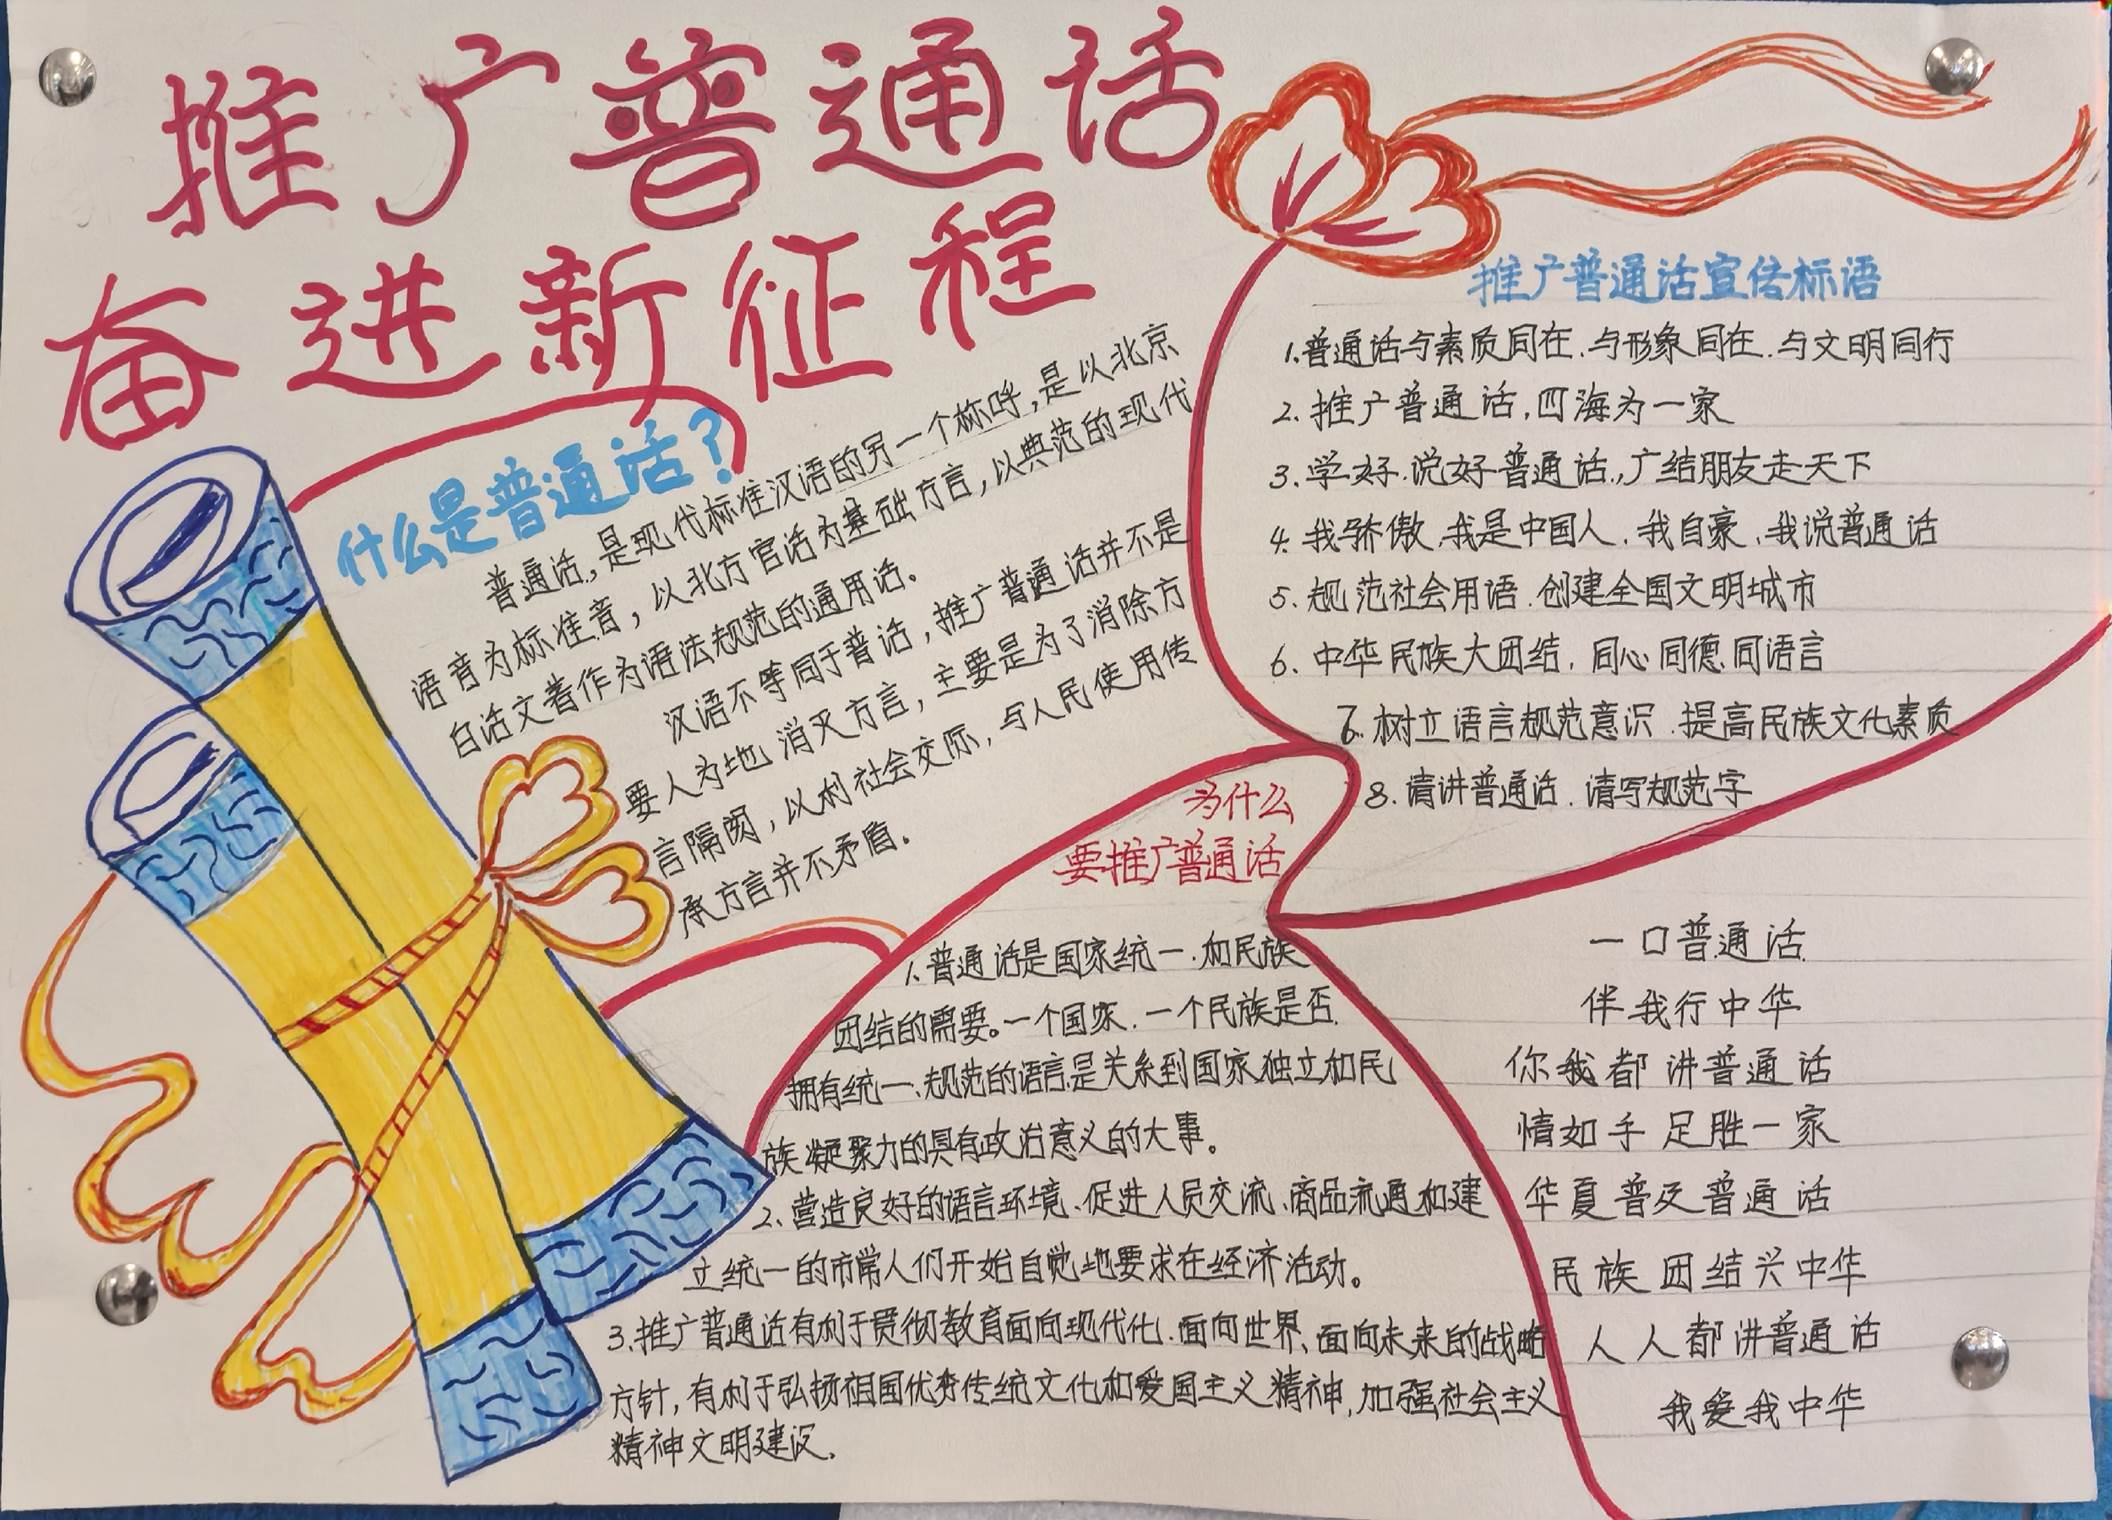 推广普通话
奋进新征程
什么是普通话？
普通话，是现代标准汉语的另一个称呼，是以北京
语音为标准音，以北方官话为基础方言，以典范的现代
白话文著作为语法规范的通用话。
汉语不等同于普话，推广普通话并不是
要人为地消灭方言，主要是为了消除方
言隔阂，以利社会交际，与人民使用传
承方言并不矛盾。
推广普通话宣传标语
1.普通话与素质同在.与形象同在.与文明同行
2.推广普通话,四海为一家
3.学好.说好普通话,广结朋友走天下
4.我骄傲,我是中国人,我自豪,我说普通话
5.规范社会用语.创建全国文明城市
6.中华民族大团结,同心同德,同语言
7.树立语言规范意识.提高民族文化素质
8.请讲普通话.请写规范字
为什么
要推广普通话
1.普通话是国家统一.和民族
团结的需要。一个国家.一个民族是否
拥有统一、规范的语言,是关系到国家独立和民
族凝聚力的具有政治意义的大事。
2、营造良好的语言环境、促进人员交流、商品流通和建
立统一的市常人们开始自觉地要求在经济活动。
3.推广普通话有利于贯彻教育面向现代化.面向世界、面向未来的战略
方针,有利于弘扬祖国优秀传统文化和爱国主义精神,加强社会主义
精神文明建设.
一口普通话
伴我行中华
你我都讲普通话
情如手足胜一家
华夏普及普通话
民族团结兴中华
人人都讲普通话
我爱我中华